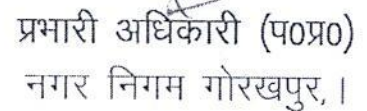 प्रभारी अधिकारी (प०प्र०)
नगर निगम गोरखपुर,।